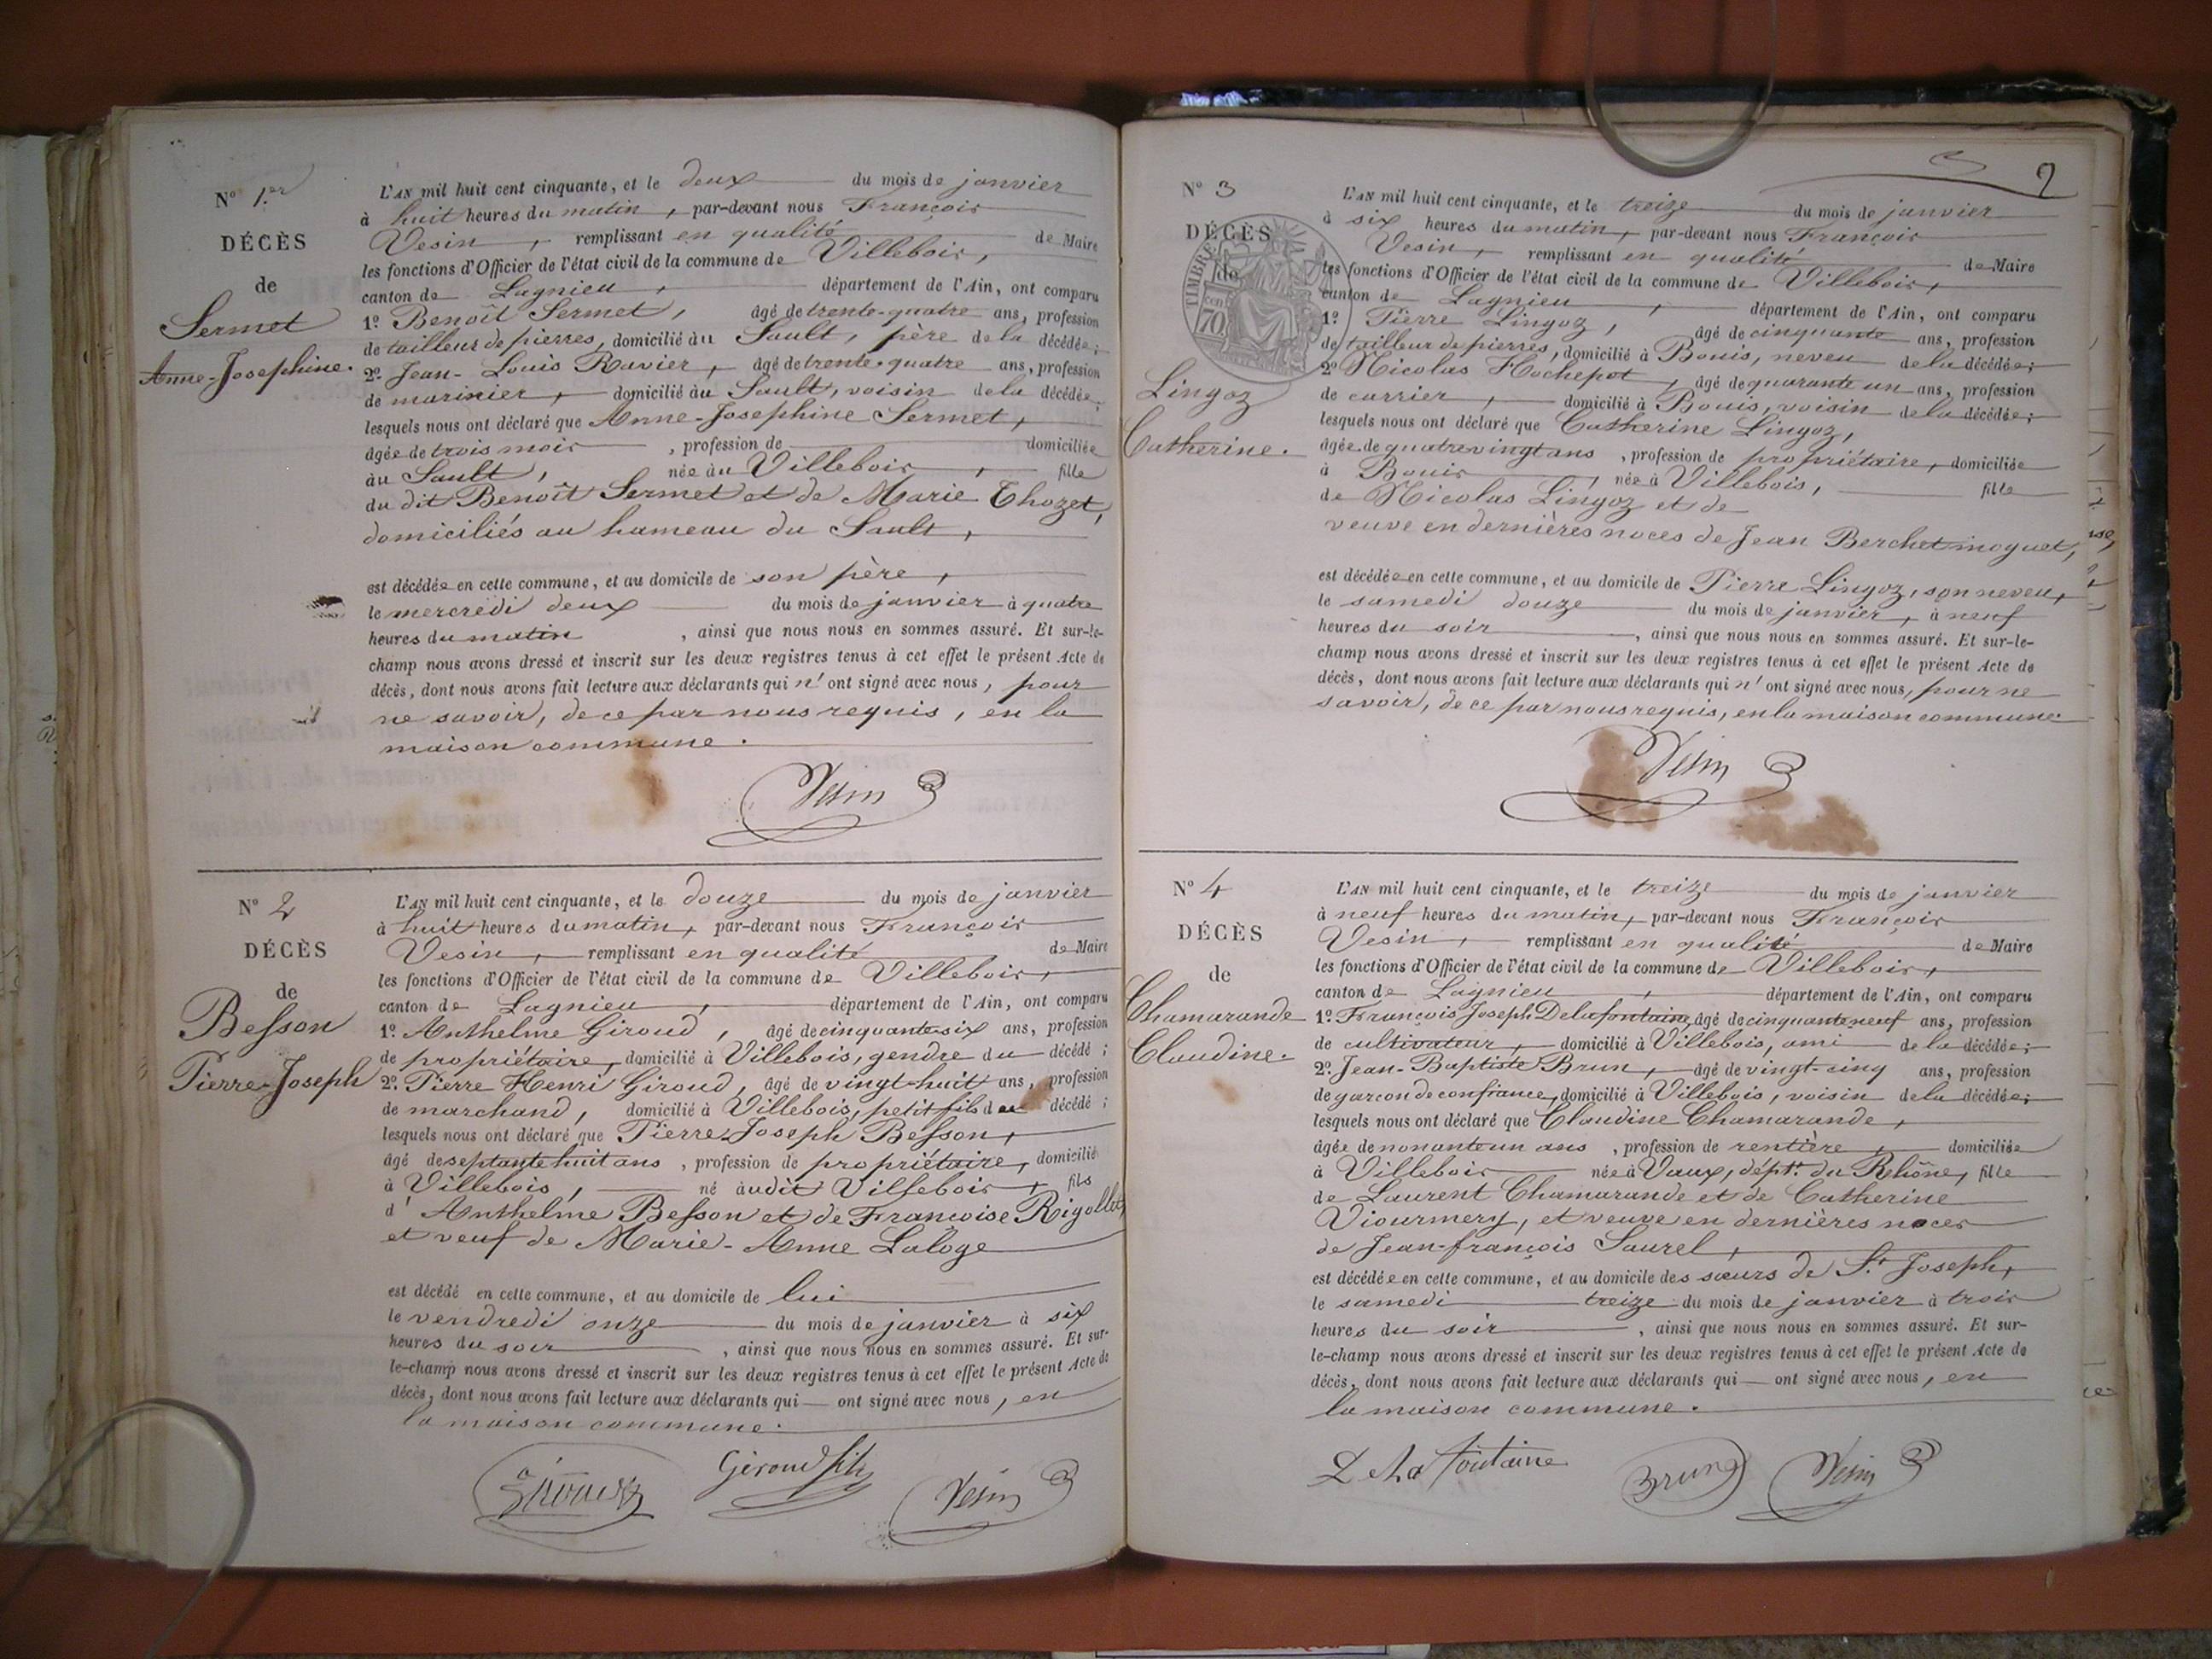 N.º 1.er
DÉCÈS
de
Sermet
Anne-Josephine.
L'AN mil huit cent cinquante, et le deux du mois de janvier
à huit heures du matin, par-devant nous François
Vesin, remplissant en qualité de Maire
les fonctions d'Officier de l'état civil de la commune de Villebois,
canton de Lagnieu, département de l'Ain, ont comparu
1.º Benoît Sermet, âgé de trente-quatre ans, profession
de tailleur de pierres, domicilié au Sault, père de la décédée;
2.º Jean-Louis Ravier, âgé de trente-quatre ans, profession
de marinier, domicilié au Sault, voisin de la décédée;
lesquels nous ont déclaré que Anne-Josephine Sermet,
âgée de trois mois, profession de domiciliée
au Sault, née au Villebois, fille
du dit Benoît Sermet et de Marie Thozet,
domiciliés au hameau du Sault,
est décédée en cette commune, et au domicile de son père,
le mercredi deux du mois de janvier à quatre
heures du matin, ainsi que nous nous en sommes assuré. Et sur-le-
champ nous avons dressé et inscrit sur les deux registres tenus à cet effet le présent Acte de
décès, dont nous avons fait lecture aux déclarants qui n'ont signé avec nous, pour
ne savoir, de ce par nous requis, en la
maison commune.
Vesin
N.º 2
DÉCÈS
de
Besson
Pierre-Joseph
L'AN mil huit cent cinquante, et le douze du mois de janvier
à huit heures du matin, par-devant nous François
Vesin, remplissant en qualité de Maire
les fonctions d'Officier de l'état civil de la commune de Villebois,
canton de Lagnieu, département de l'Ain, ont comparu
1.º Anthelme Giroud, âgé de cinquante-six ans, profession
de propriétaire, domicilié à Villebois, gendre du décédé;
2.º Pierre Henri Giroud, âgé de vingt-huit ans, profession
de marchand, domicilié à Villebois, petit fils du décédé;
lesquels nous ont déclaré que Pierre-Joseph Besson,
âgé de septante huit ans, profession de propriétaire, domicilié
à Villebois, né audit Villebois, fils
d'Anthelme Besson et de Françoise Rigollet,
et veuf de Marie-Anne Laloge
est décédé en cette commune, et au domicile de lui
le vendredi onze du mois de janvier à six
heures du soir, ainsi que nous nous en sommes assuré. Et sur-
le-champ nous avons dressé et inscrit sur les deux registres tenus à cet effet le présent Acte de
décès, dont nous avons fait lecture aux déclarants qui ont signé avec nous, en
la maison commune.
Giroud Giroud fils Vesin
2
N.º 3
DÉCÈS
TIMBRE
70
Lingoz
Catherine.
L'AN mil huit cent cinquante, et le treize du mois de janvier
à six heures du matin, par-devant nous François
Vesin, remplissant en qualité de Maire
les fonctions d'Officier de l'état civil de la commune de Villebois,
canton de Lagnieu, département de l'Ain, ont comparu
1.º Pierre Lingoz, âgé de cinquante ans, profession
de tailleur de pierres, domicilié à Bouis, neveu de la décédée;
2.º Nicolas Hochepot, âgé de quarante un ans, profession
de carrier, domicilié à Bouis, voisin de la décédée;
lesquels nous ont déclaré que Catherine Lingoz,
âgée de quatre vingt ans, profession de propriétaire, domiciliée
à Bouis, née à Villebois, fille
de Nicolas Lingoz et de
veuve en dernières noces de Jean Berchet-moguet,
est décédée en cette commune, et au domicile de Pierre Lingoz, son neveu,
le samedi douze du mois de janvier, à neuf
heures du soir, ainsi que nous nous en sommes assuré. Et sur-le-
champ nous avons dressé et inscrit sur les deux registres tenus à cet effet le présent Acte de
décès, dont nous avons fait lecture aux déclarants qui n'ont signé avec nous, pour ne
savoir, de ce par nous requis, en la maison commune.
Vesin
N.º 4
DÉCÈS
de
Chamarande
Claudine.
L'AN mil huit cent cinquante, et le treize du mois de janvier
à neuf heures du matin, par-devant nous François
Vesin, remplissant en qualité de Maire
les fonctions d'Officier de l'état civil de la commune de Villebois,
canton de Lagnieu, département de l'Ain, ont comparu
1.º François Joseph Delafontaine, âgé de cinquante neuf ans, profession
de cultivateur, domicilié à Villebois, ami de la décédée;
2.º Jean-Baptiste Brun, âgé de vingt-cinq ans, profession
de garcon de confiance, domicilié à Villebois, voisin de la décédée;
lesquels nous ont déclaré que Claudine Chamarande,
âgée de nonante un ans, profession de rentière, domiciliée
à Villebois née à Vaux, dépt. du Rhône, fille
de Laurent Chamarande et de Catherine
Viourmery, et veuve en dernières noces
de Jean-françois Saurel,
est décédée en cette commune, et au domicile des sœurs de St. Joseph,
le samedi treize du mois de janvier à trois
heures du soir, ainsi que nous nous en sommes assuré. Et sur-
le-champ nous avons dressé et inscrit sur les deux registres tenus à cet effet le présent Acte de
décès, dont nous avons fait lecture aux déclarants qui ont signé avec nous, en
la maison commune.
Delafontaine Brun Vesin